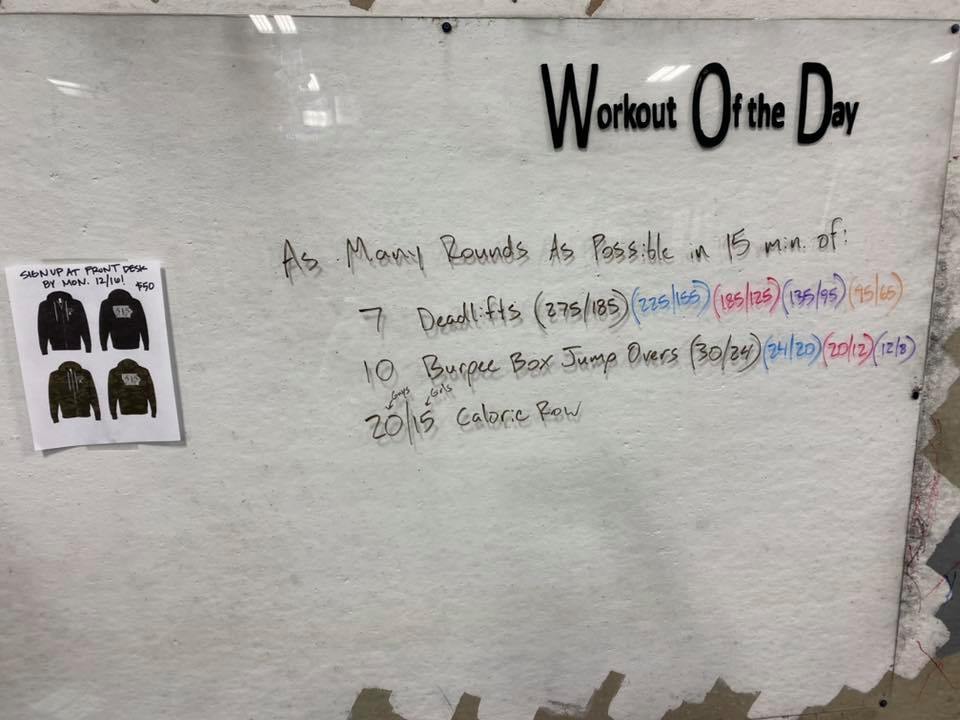 Workout Of the Day
As Many Rounds As Possible in 15 min. of:
7 Deadlifts (275/185)(225/155)(185/125)(135/95)(95/65)
10 Burpee Box Jump Overs (30/24)(24/20)(20/12)(12/8)
Guys Girls
20/15 Calorie Row
SIGN UP AT FRONT DESK
BY MON. 12/16!
$50
515
515